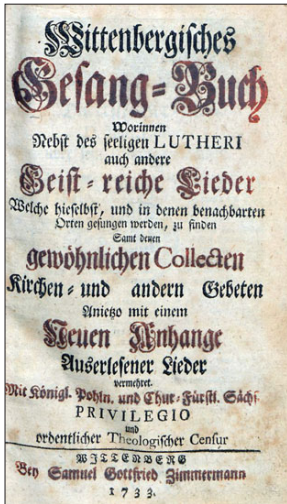 Wittenbergisches
Gesang-Buch
Worinnen
Nebst des seeligen LUTHERI
auch andere
Geist-reiche Lieder
Welche hieselbst, und in denen benachbarten
Orten gesungen werden, zu finden
Samt denen
gewöhnlichen Collecten
Kirchen- und andern Gebeten
Anietzo mit einem
Neuen Anhange
Auserlesener Lieder
vermehret.
Mit Königl. Pohln. und Chur-Fürstl. Sächs.
PRIVILEGIO
und
ordentlicher Theologischer Censur
WITTENBERG
Bey Samuel Gottfried Zimmermann
1733.